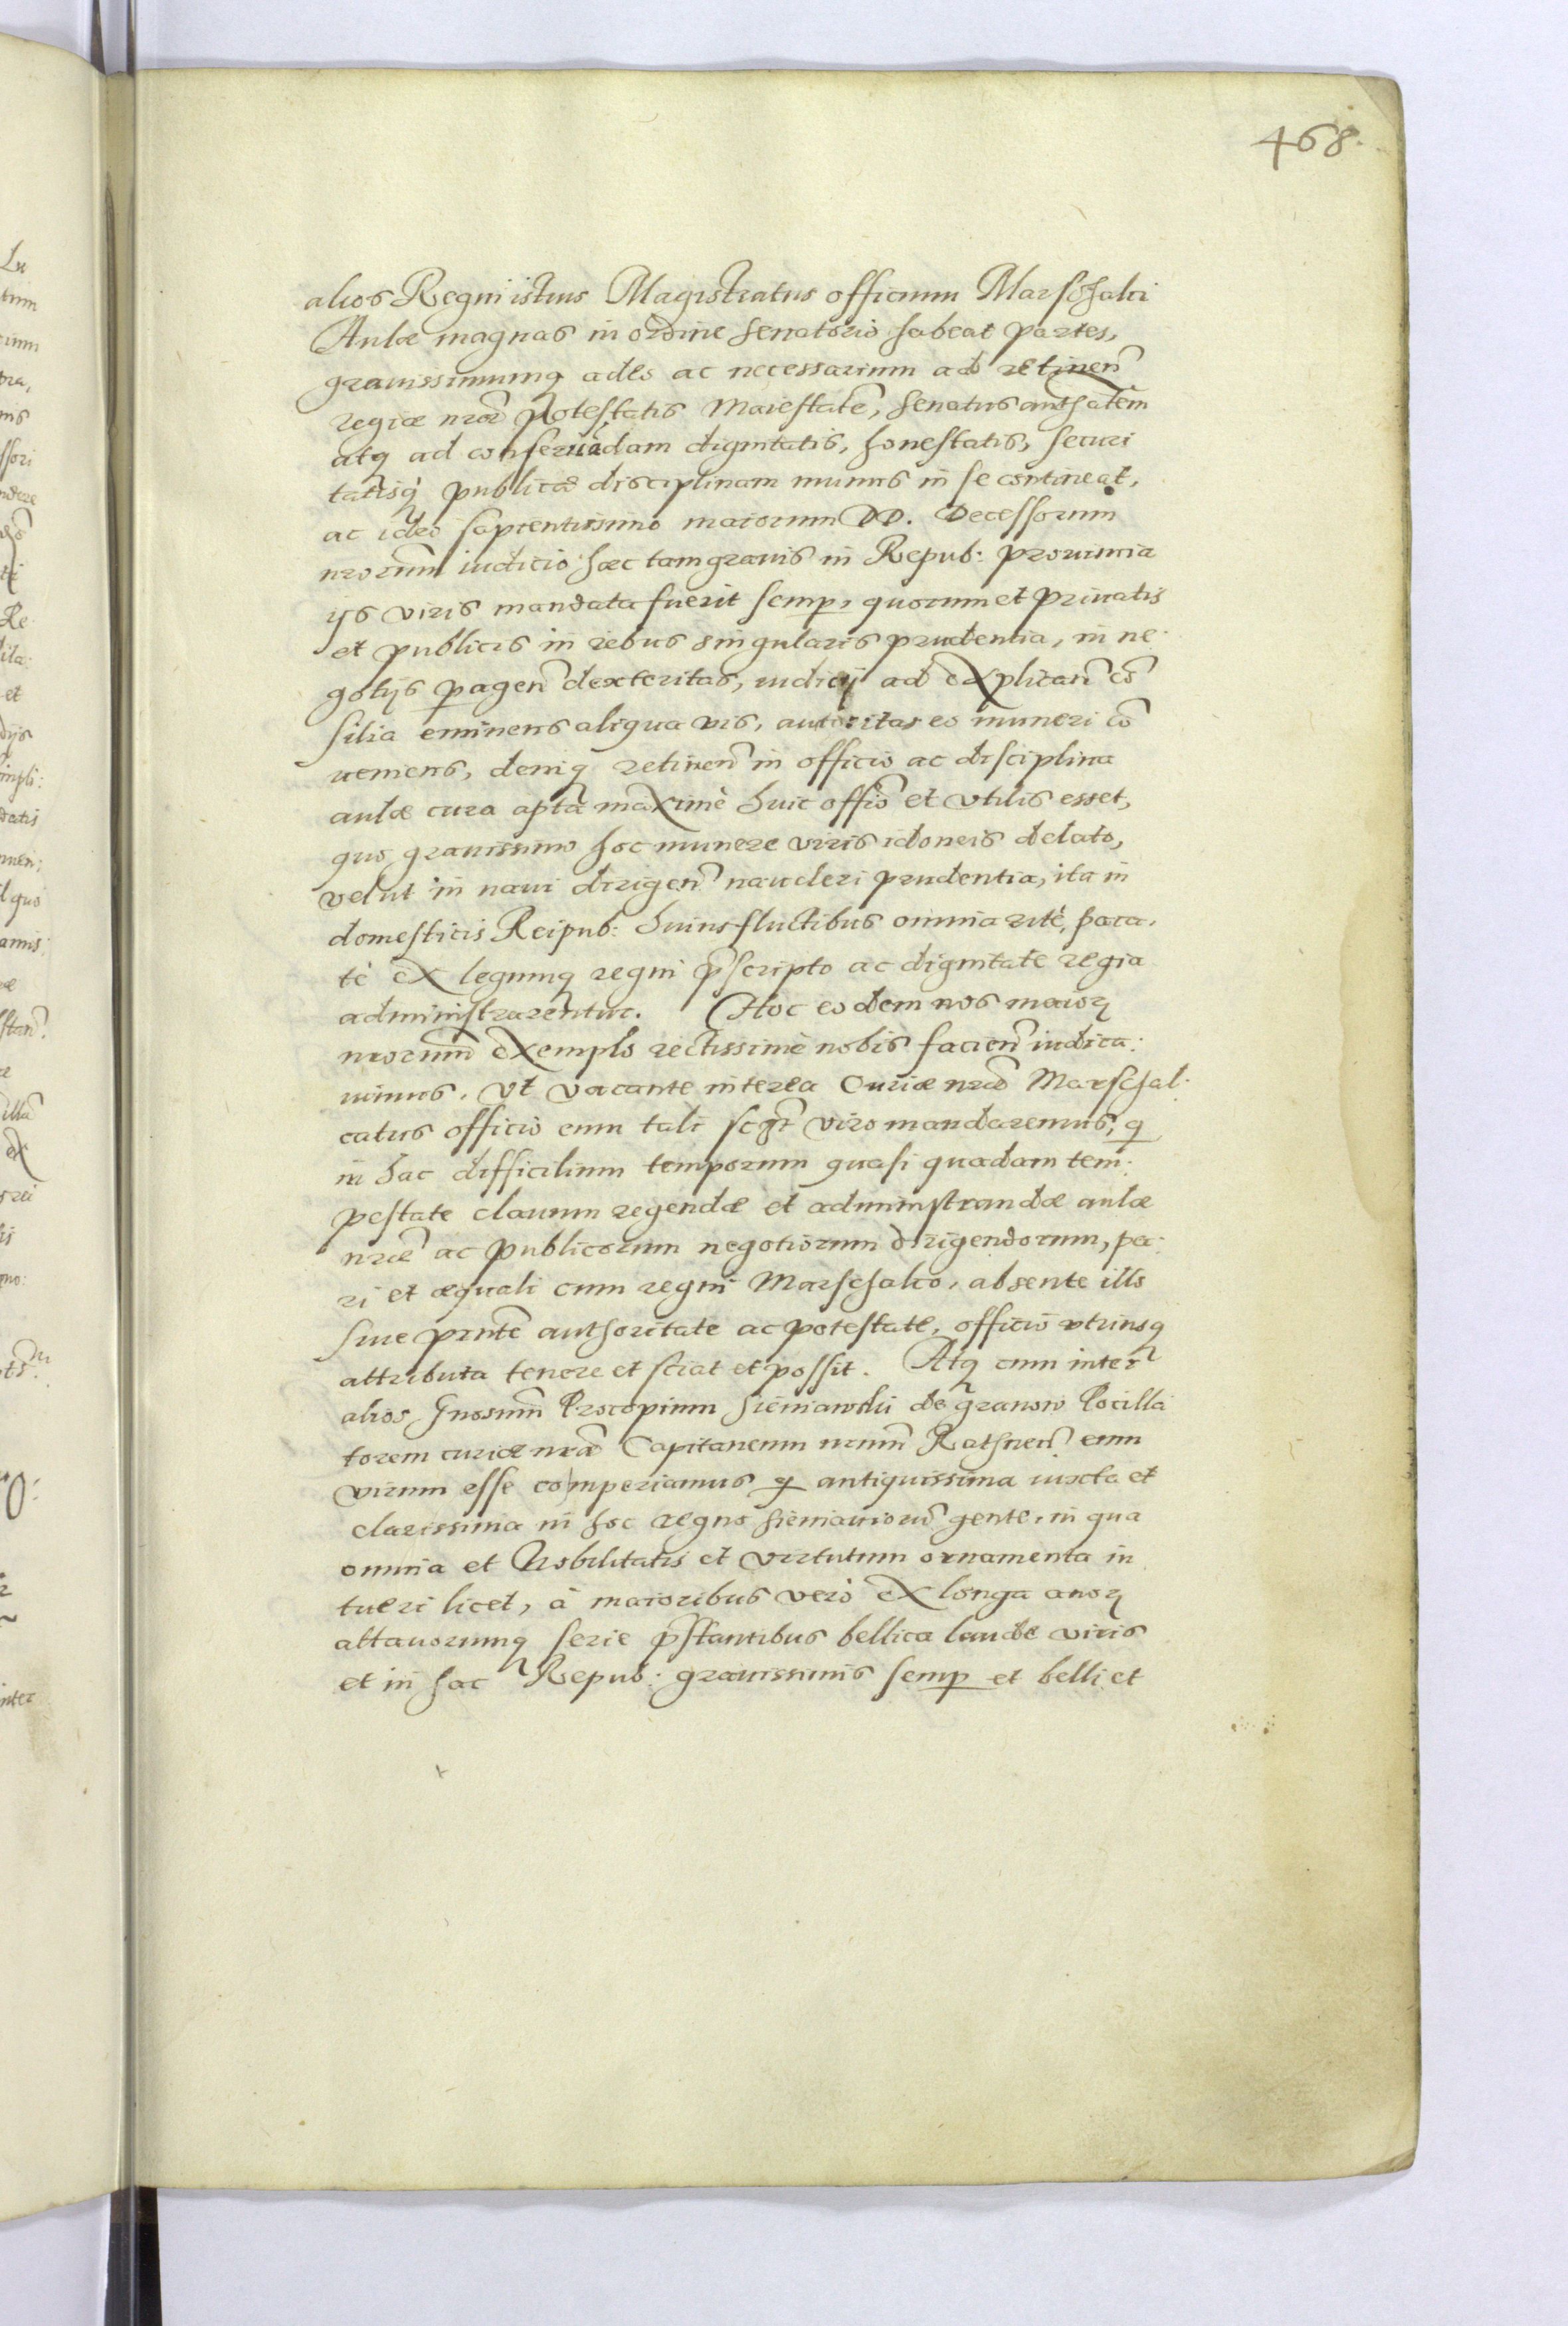 468.
alios Regni istius Magistratus officium Marschalci
Aulæ magnas in ordine senatorio habeat partes,
grauissimumq adeo ac necessarium ad retinen̄
regiæ nræ Potestatis Maiestatē, senatus authatem
atq ad conseruādam dignitatis, honestatis, securi
tatisq publicæ disciplinam munus in se contineat,
ac ideo sapientissimo maiorum DD. Decessorum
nrorum iudicio hæc tam grauis in Repub: prouincia
ijs viris mandata fuerit semp, quorum et priuatis
et publicis in rebus singularis prudentia, in ne
gotijs pagen̄ dexteritas, iudicij ad explican̄ cō
silia eminens aliqua vis, autoritas eo muneri cō
ueniens, deniq retinen̄ in officio ac disciplina
aulæ cura apta maximè huic offio et vtilis esset,
quo grauissimo hoc munere viris idoneis delato,
velut in naui dirigen̄ naucleri prudentia, ita in
domesticis Reipub: huius fluctibus omnia ritè, paca.
tè ex legumq regni p̄scripto ac dignitate regia
administrarentur. Hoc eodem nos maioꝝ
nrorum exemplo rectissimè nobis facien̄ iudica:
uimus, vt vacante interea Curiæ nræ Marschal:
catus officio eum tali viro mandaremus, q
in hac difficilium temporum quasi quadam tem:
pestate clauum regendæ et administrandæ aulæ
nræ ac publicorum negotiorum dirigendorum, pa:
ri et æquali cum regni Marschalco, absente illo
siue pnte authoritate ac potestate, officio vtriusq
attributa tenere et sciat et possit. Atq cum inter
alios Gnosum Procopium Sieniawski de Granow Pocilla
torem curiæ nræ Capitaneum nrum Rathnen̄ eum
virum esse comperiamus q antiquissima iuxta et
clarissima in hoc regno Sieniauiorū gente, in qua
omnia et Nobilitatis et virtutum ornamenta in
tueri licet, à maioribus verò ex longa auoꝝ
attauorumq serie p̄stantibus bellica laude viris
et in hac Repub: grauissimis semp et belli et